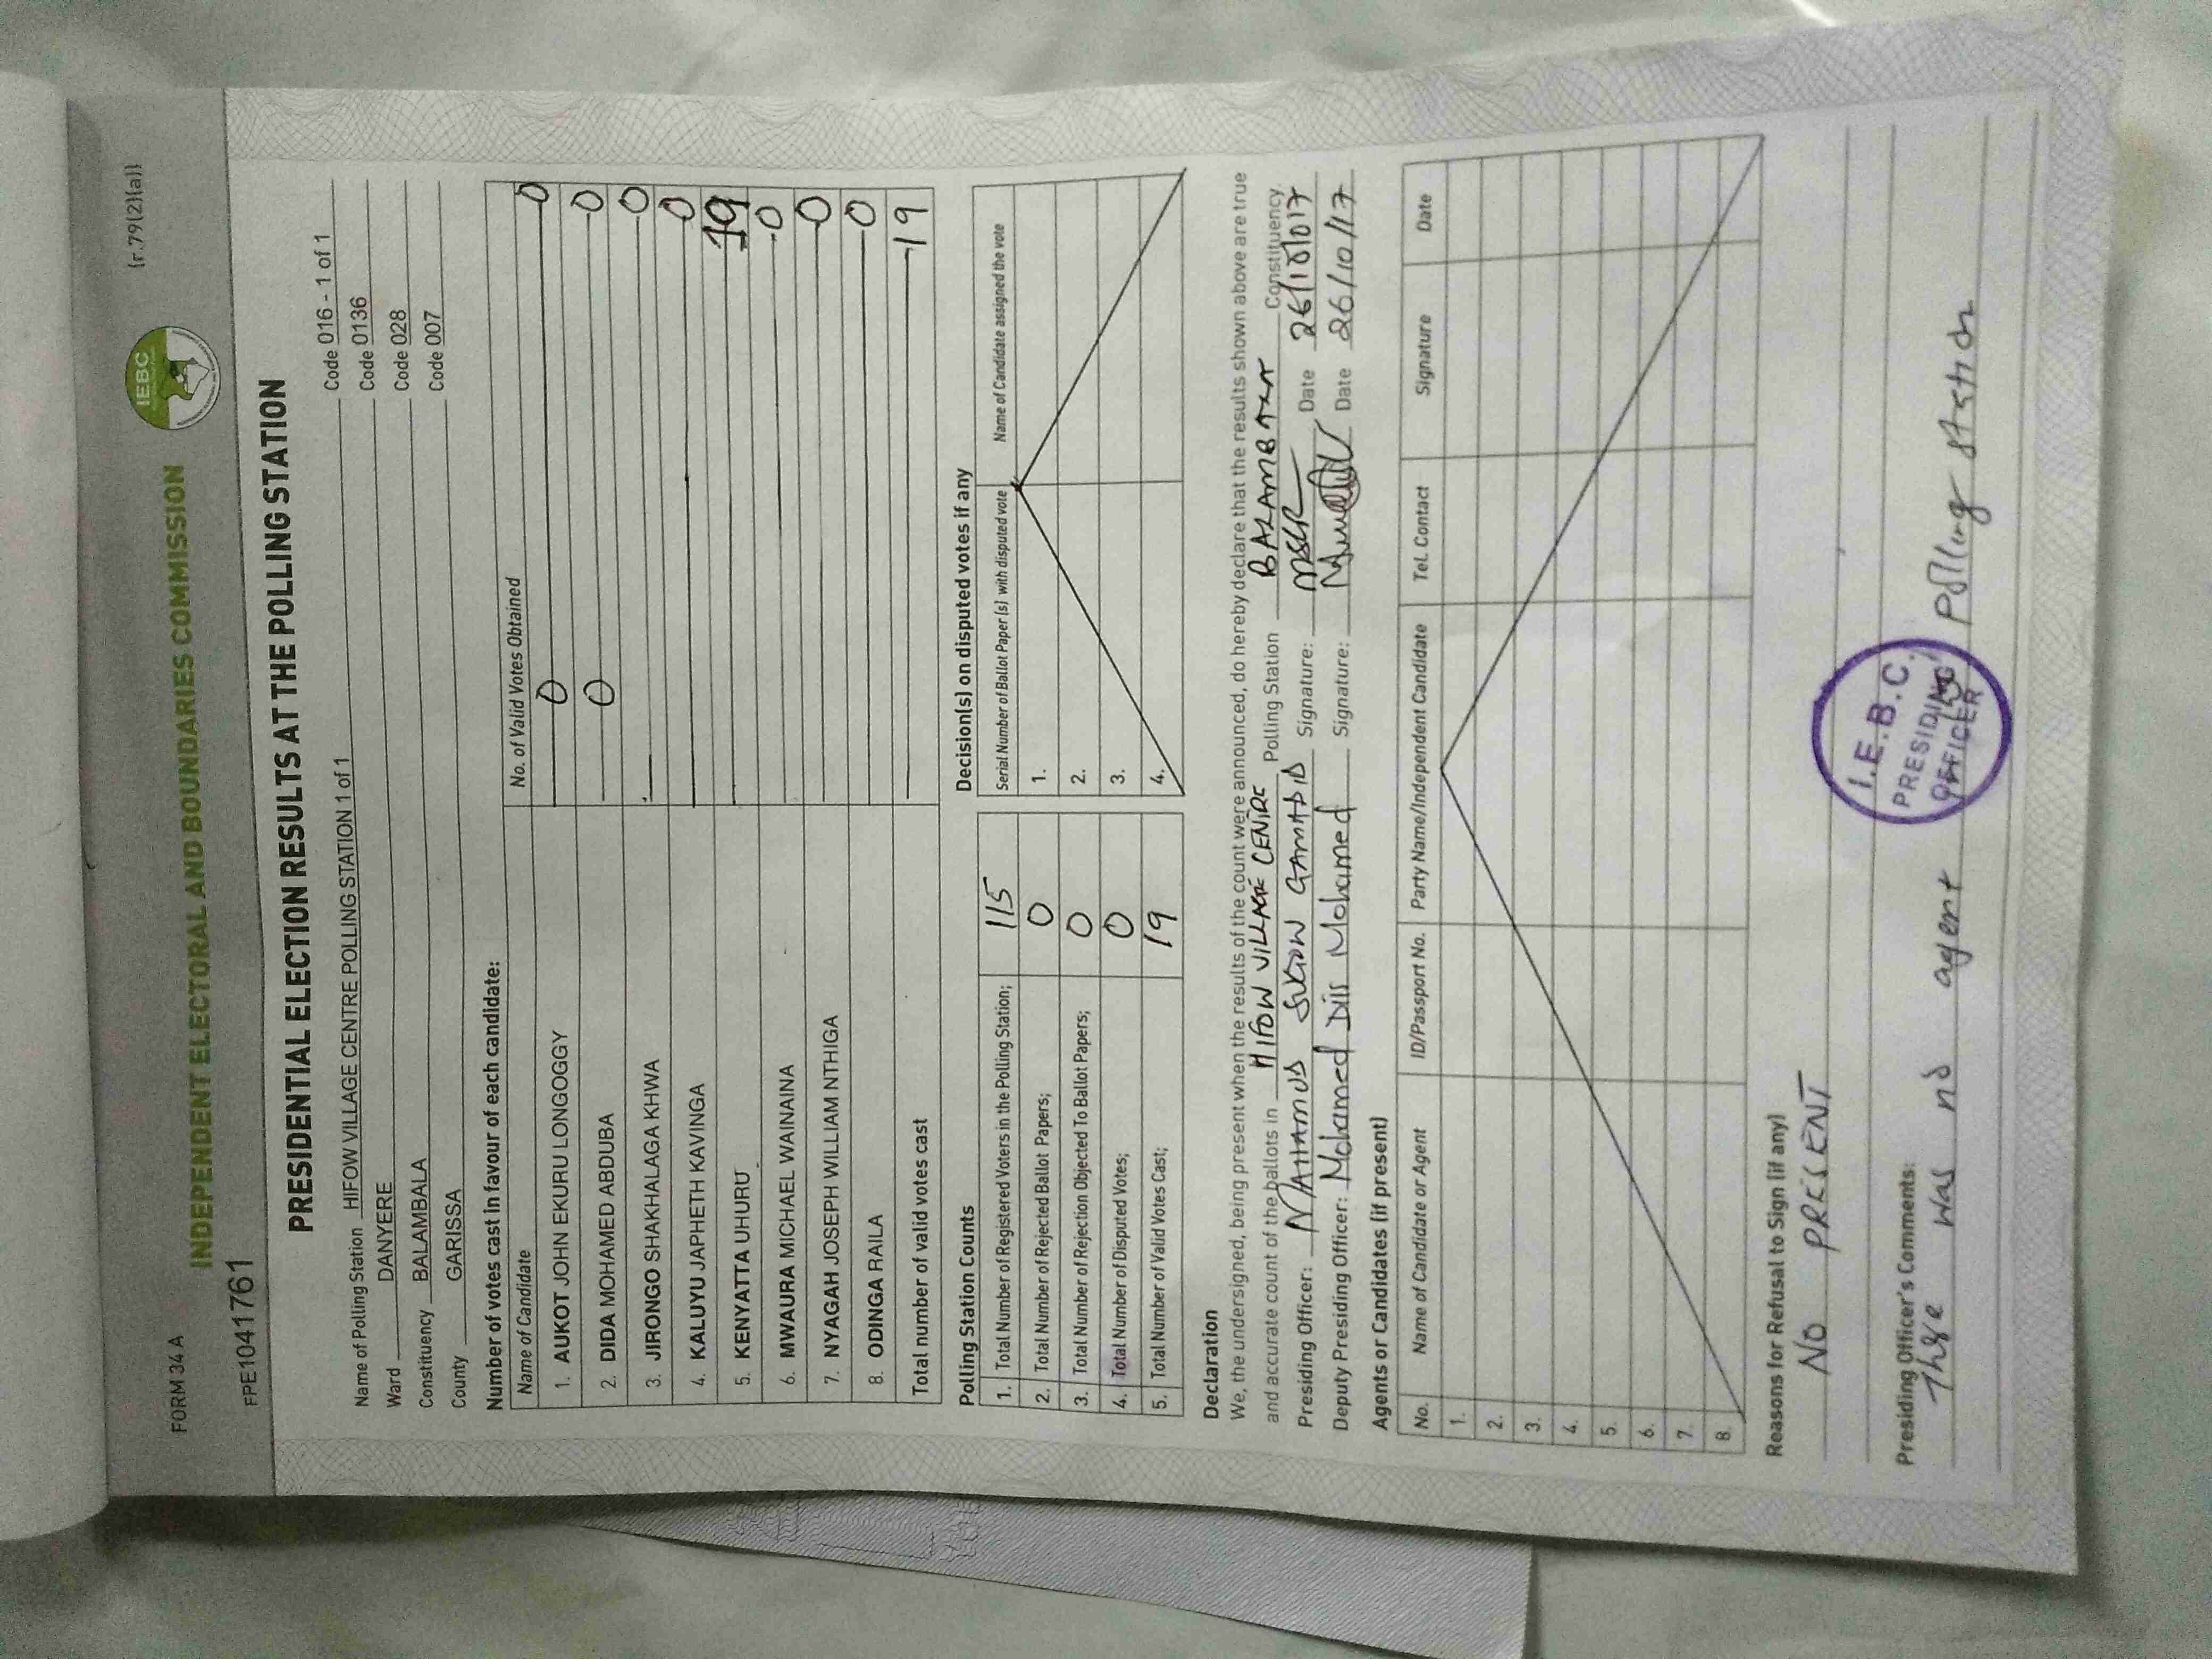 FORM 34 A
(r.79(2)(a))
IEBC
INDEPENDENT ELECTORAL AND BOUNDARIES COMMISSION
FPE1041761
PRESIDENTIAL ELECTION RESULTS AT THE POLLING STATION
Name of Polling Station HIFOW VILLAGE CENTRE POLLING STATION 1 of 1 Code 016 - 1 of 1
Ward DANYERE Code 0136
Constituency BALAMBALA Code 028
County GARISSA Code 007
Number of votes cast in favour of each candidate:
Name of Candidate No. of Valid Votes Obtained
1. AUKOT JOHN EKURU LONGOGGY 0 0
2. DIDA MOHAMED ABDUBA 0 0
3. JIRONGO SHAKHALAGA KHWA 0
4. KALUYU JAPHETH KAVINGA 0
5. KENYATTA UHURU 19
6. MWAURA MICHAEL WAINAINA 0
7. NYAGAH JOSEPH WILLIAM NTHIGA 0
8. ODINGA RAILA 0
Total number of valid votes cast 19
Polling Station Counts
1. Total Number of Registered Voters in the Polling Station; 115
2. Total Number of Rejected Ballot Papers; 0
3. Total Number of Rejection Objected To Ballot Papers; 0
4. Total Number of Disputed Votes; 0
5. Total Number of Valid Votes Cast; 19
Decision(s) on disputed votes if any
Serial Number of Ballot Paper (s) with disputed vote Name of Candidate assigned the vote
1.
2.
3.
4.
Declaration
We, the undersigned, being present when the results of the count were announced, do hereby declare that the results shown above are true
and accurate count of the ballots in HIFOW VILLAGE CENTRE Polling Station Constituency.
Presiding Officer: Signature: Date 26/10/017
Deputy Presiding Officer: Mohamed Dir Mohamed Signature: Date 26/10/17
Agents or Candidates (if present)
No. Name of Candidate or Agent ID/Passport No. Party Name/Independent Candidate Tel. Contact Signature Date
1.
2.
3.
4.
5.
6.
7.
8.
Reasons for Refusal to Sign (if any)
NO PRESENT
Presiding Officer's Comments:
There was no agent Polling station
I.E.B.C.
PRESIDING
OFFICER